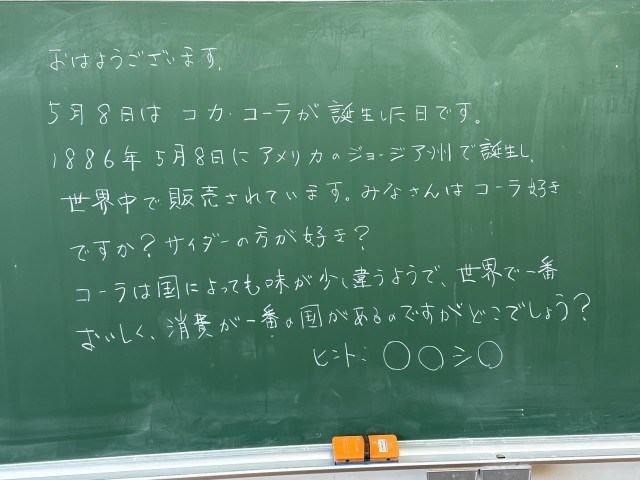 おはようございます。
5月8日は コカ・コーラが 誕生した日です。
1886年5月8日に アメリカのジョージア州で誕生し、
世界中で販売されています。みなさんは コーラ好き
ですか？サイダーの方が好き？
コーラは国によっても味が少し違うようで、世界で一番
おいしく、消費が一番の国があるのですがどこでしょう？
ヒント：〇〇シ〇